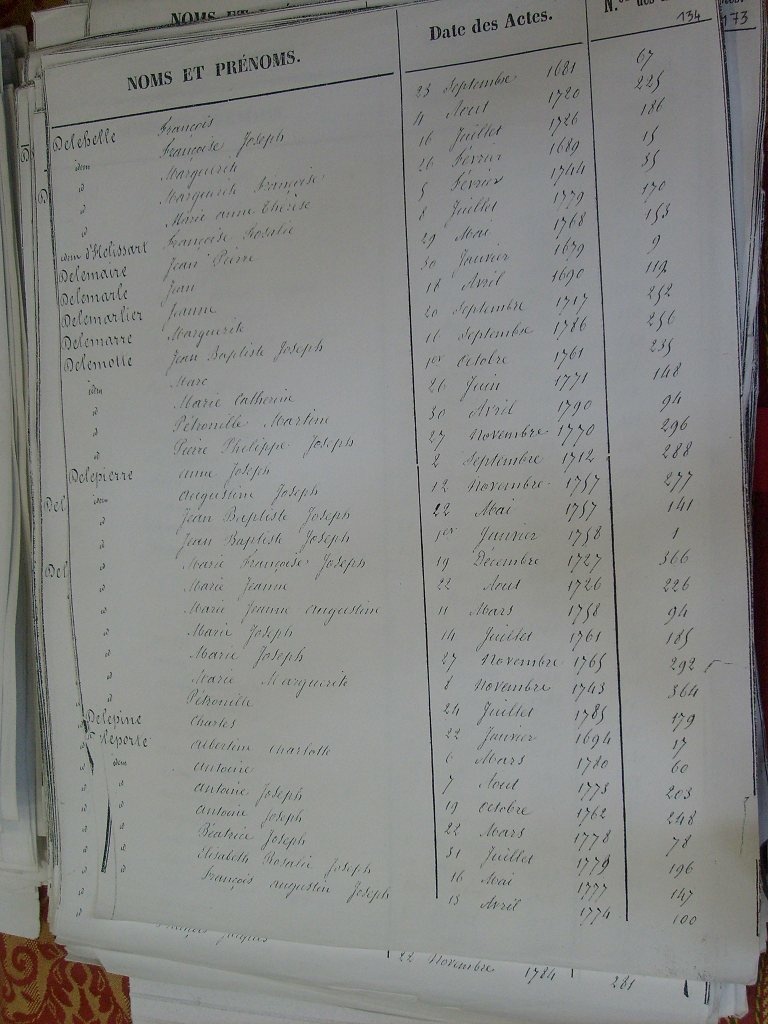 NOMS ET
173
134
NOMS ET PRÉNOMS. Date des Actes. N.os des
Delebelle François 23 Septembre 1681 67
idem Françoise Joseph 4 Aout 1720 225
d Marguerite 16 Juillet 1726 186
d Marguerite Françoise 26 Février 1689 15
d Marie Anne Thérèse 5 Février 1744 35
idem d'Holissart Françoise Rosalie 8 Juillet 1779 170
Delemaire Jean Pierre 29 Mai 1768 153
Delemarle Jean 30 Janvier 1679 9
Delemarlier Jeanne 18 Avril 1690 119
Delemarre Marguerite 20 Septembre 1717 252
Delemotte Jean Baptiste Joseph 16 Septembre 1786 256
idem Marc 1er Octobre 1761 235
d Marie Catherine 26 Juin 1771 148
d Pétronille Martine 30 Avril 1790 94
d Pierre Philippe Joseph 27 Novembre 1770 296
Delepierre Anne Joseph 2 Septembre 1712 288
idem Augustine Joseph 12 Novembre 1757 277
d Jean Baptiste Joseph 22 Mai 1757 141
d Jean Baptiste Joseph 1er Janvier 1758 1
d Marie Françoise Joseph 19 Décembre 1727 366
d Marie Jeanne 22 Aout 1726 226
d Marie Jeanne Augustine 11 Mars 1758 94
d Marie Joseph 14 Juillet 1761 185
d Marie Joseph 27 Novembre 1765 292
d Marie Marguerite 8 Novembre 1743 364
d Pétronille 24 Juillet 1785 179
Delepine Charles 22 Janvier 1694 17
Deleporte Albertine Charlotte 6 Mars 1780 60
idem Antoine 7 Aout 1773 203
d Antoine Joseph 19 Octobre 1762 248
d Antoine Joseph 22 Mars 1778 78
d Béatrice Joseph 31 Juillet 1779 196
d Elisabeth Rosalie Joseph 16 Mai 1777 147
d François Augustin Joseph 13 Avril 1774 100
François Jacques 22 Novembre 1784 281
Del
Del